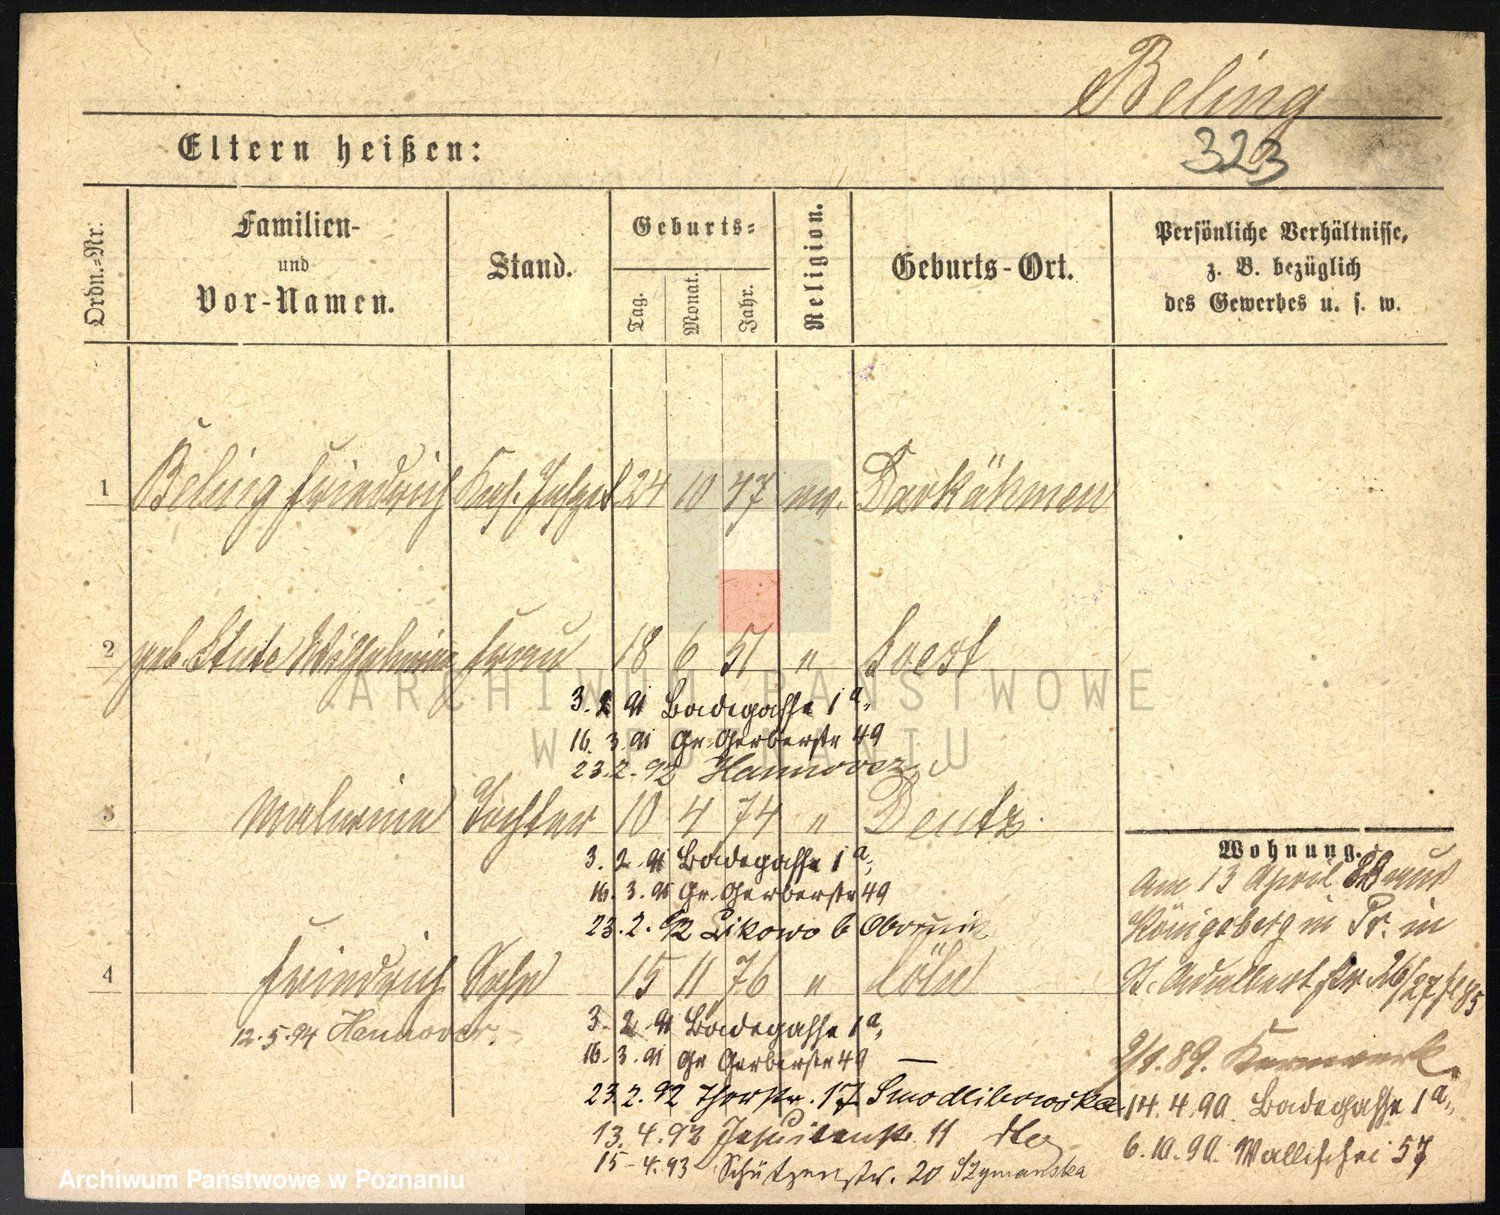 Beling
323
Eltern heißen:
Ordn.-Nr.
Familien- und Vor-Namen.
Stand.
Geburts-
Tag.
Monat.
Jahr.
Religion.
Geburts-Ort.
Persönliche Verhältnisse, z. B. bezüglich des Gewerbes u. s. w.
1 Beling Friedrich 24 10 47 ev. Darkähmen
2 geb. Stute Wilhelmine Frau 18 6 51 " Soest
3. 2. 91 Badegasse 1a,
16. 3. 91 Gr. Gerberstr 49
23. 2. 92 Hannover
3 Malwine Tochter 10 4 74 " Deutz.
3. 2. 91 Badegasse 1a,
16. 3. 91 Gr. Gerberstr 49
23. 2. 92 b Obornik
4 Friedrich Sohn 15 11 76 " Cöln
12.5.94 Hannover.
3. 2. 91 Badegasse 1a,
16. 3. 91 Gr Gerberstr 49
23. 2. 92 Thorstr. 17 Smodlibowska
13. 4. 92 Jesuitenstr. 11
15-4.93 Schützenstr. 20 Szymanska
Wohnung.
am 13 April 88 aus
Königsberg in Pr. in
St. Adalbertstr 26/27
89. Kernwerk.
14. 4. 90. Badegasse 1a,
6. 10. 90. Wallischei 57
ARCHIWUM PAŃSTWOWE
W POZNANIU
Archiwum Państwowe w Poznaniu